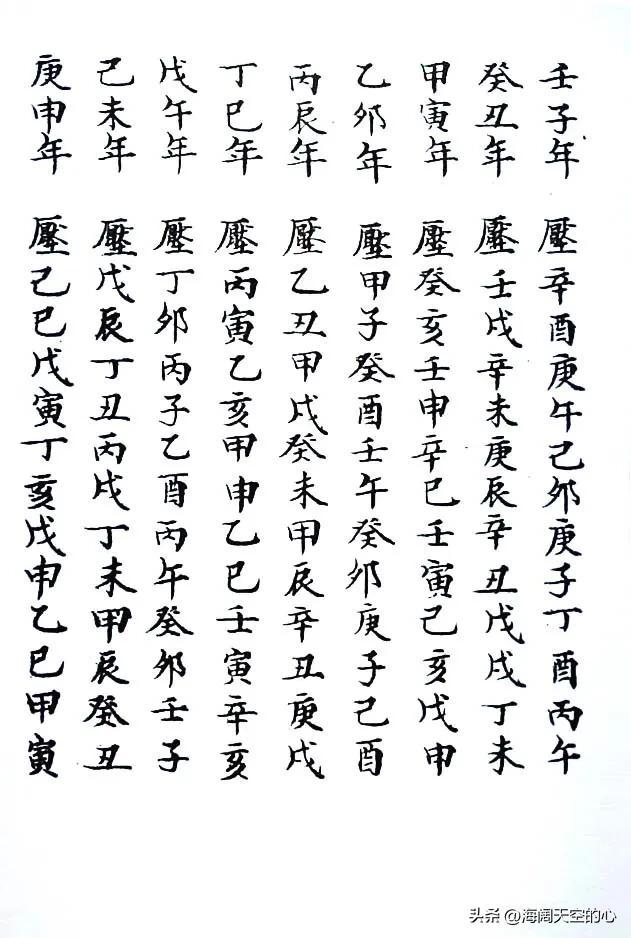 壬子年 壓辛酉庚午己卯庚子丁酉丙午
癸丑年 壓壬戌辛未庚辰辛丑戊戌丁未
甲寅年 壓癸亥壬申辛巳壬寅己亥戊申
乙卯年 壓甲子癸酉壬午癸卯庚子己酉
丙辰年 壓乙丑甲戌癸未甲辰辛丑庚戌
丁巳年 壓丙寅乙亥甲申乙巳壬寅辛亥
戊午年 壓丁卯丙子乙酉丙午癸卯壬子
己未年 壓戊辰丁丑丙戌丁未甲辰癸丑
庚申年 壓己巳戊寅丁亥戊申乙巳甲寅
头条 @海阔天空的心